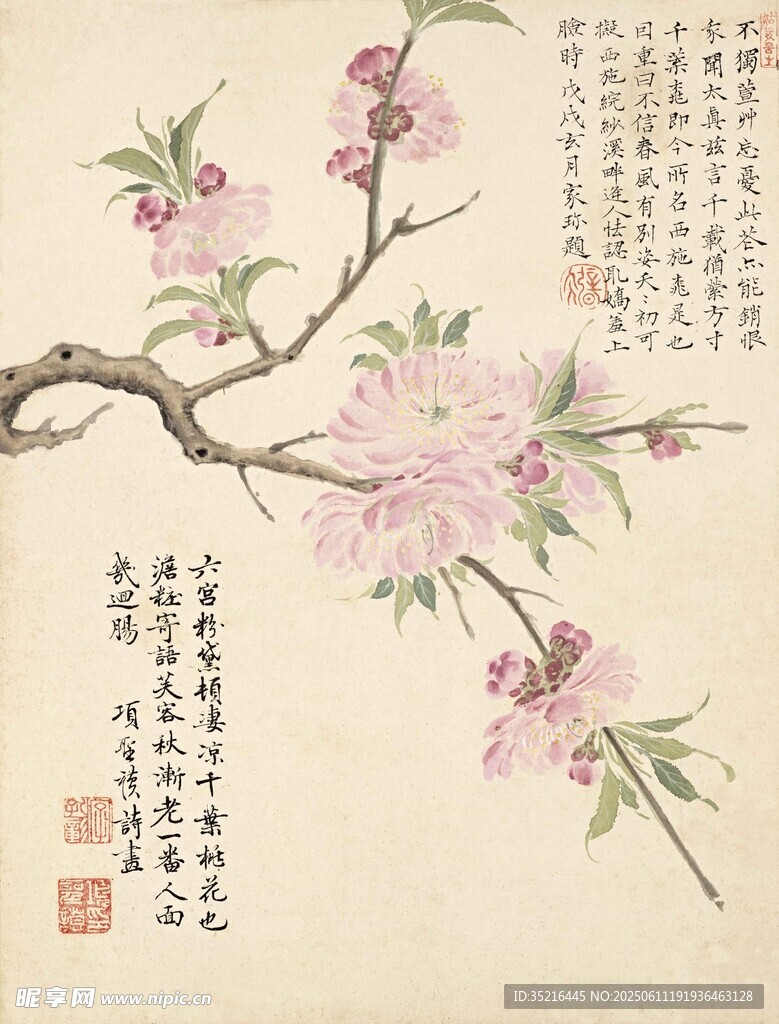 不獨萱艸忘憂此花亦能銷恨
家聞太真茲言千載猶縈方寸
千葉桃即今所名西施桃是也
因重曰不信春風有別姿夭〻初可
擬西施浣紗溪畔逢人怯認取嬌羞上
臉時 戊戌玄月家珍題
六宮粉黛頓淒凉千葉桃花也
澹粧寄語芙容秋漸老一番人面
幾迴腸
項聖謨詩畫
昵享网 www.nipic.cn
ID:35216445 NO:20250611191936463128